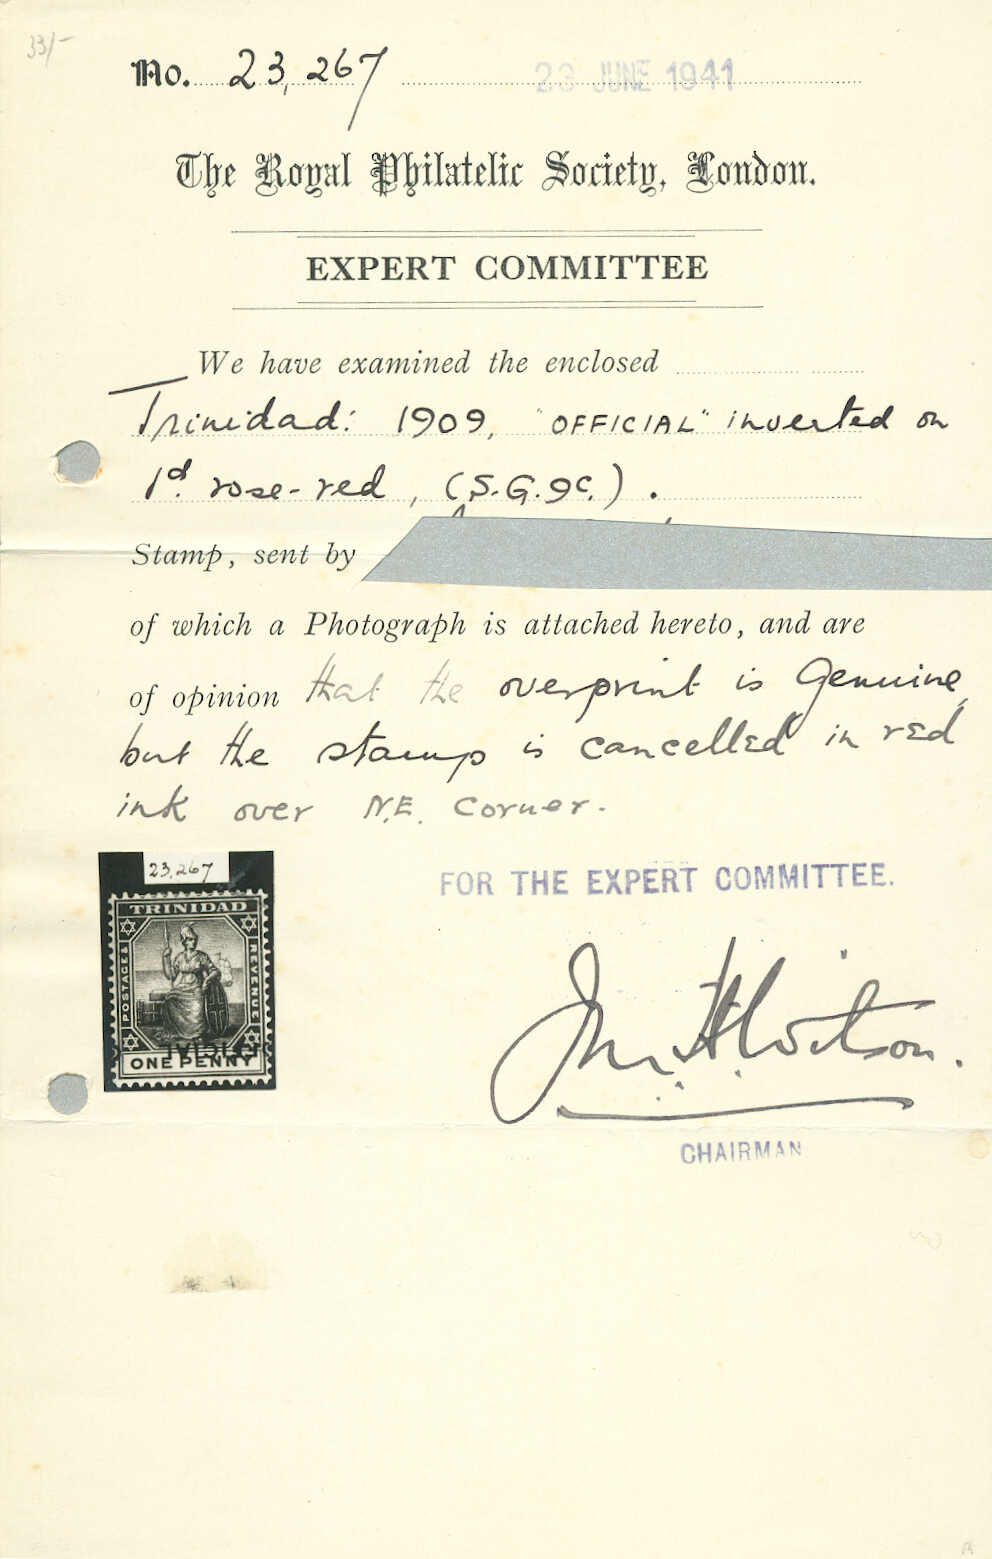 33/-
No. 23,267 23 JUNE 1941
The Royal Philatelic Society, London.
EXPERT COMMITTEE
We have examined the enclosed
Trinidad: 1909, "OFFICIAL" inverted on
1d. rose-red, (S.G.9c.).
Stamp, sent by
of which a Photograph is attached hereto, and are
of opinion that the overprint is genuine,
but the stamp is cancelled in red
ink over N.E. corner.
23,267
TRINIDAD
POSTAGE &
REVENUE
OFFICIAL
ONE PENNY
FOR THE EXPERT COMMITTEE.
Jn. H Wilson.
CHAIRMAN